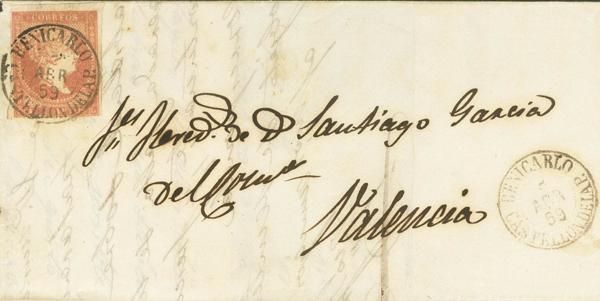 CORREOS
BENICARLO
ABR
59
CASTELLON DE LA P.
Sres. Hered. de D. Santiago Garcia
del Comº
Valencia
BENICARLO
ABR
CASTELLON DE LA P.